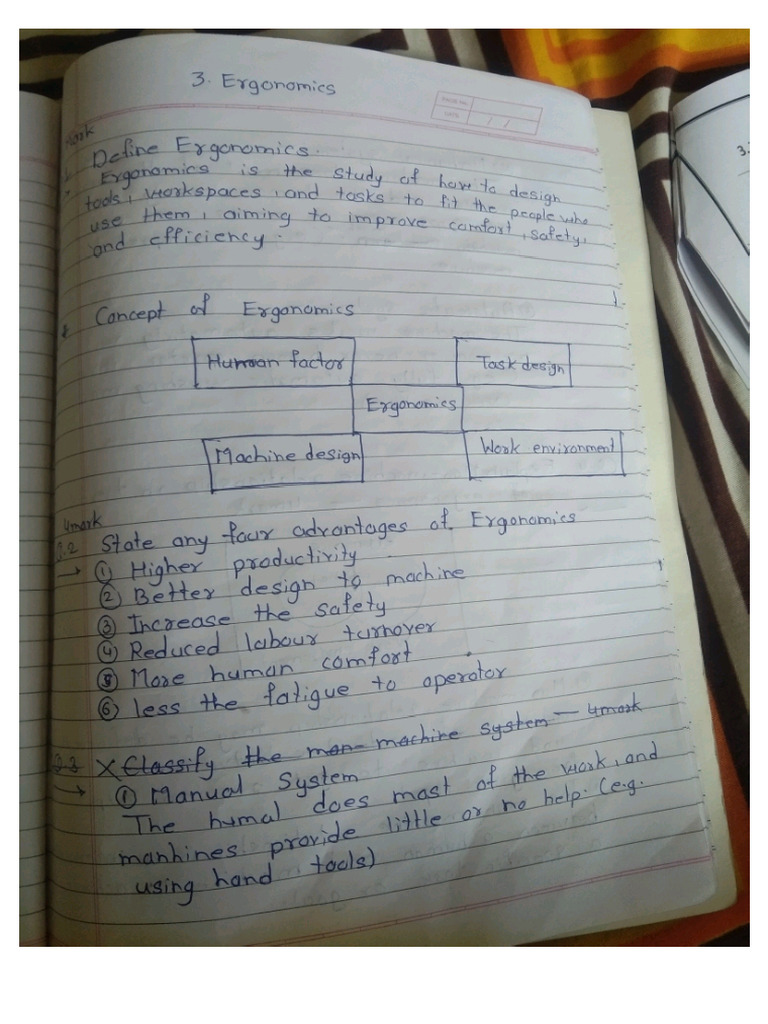 3. Ergonomics
PAGE NO.
DATE / /
Mark
Define Ergonomics.
Ergonomics is the study of how to design
tools, workspaces, and tasks to fit the people who
use them, aiming to improve comfort, safety,
and efficiency.
Concept of Ergonomics
Human factor
Task design
Ergonomics
Machine design
Work environment
4mark
Q.2 State any four advantages of Ergonomics
→ ① Higher productivity
② Better design to machine
③ Increase the safety
④ Reduced labour turnover
⑤ More human comfort
⑥ less the fatigue to operator
Q.3 X Classify the man- machine system - 4mark
→ ① Manual System
The humal does most of the work, and
manhines provide little or no help. (e.g.
using hand tools)
3.